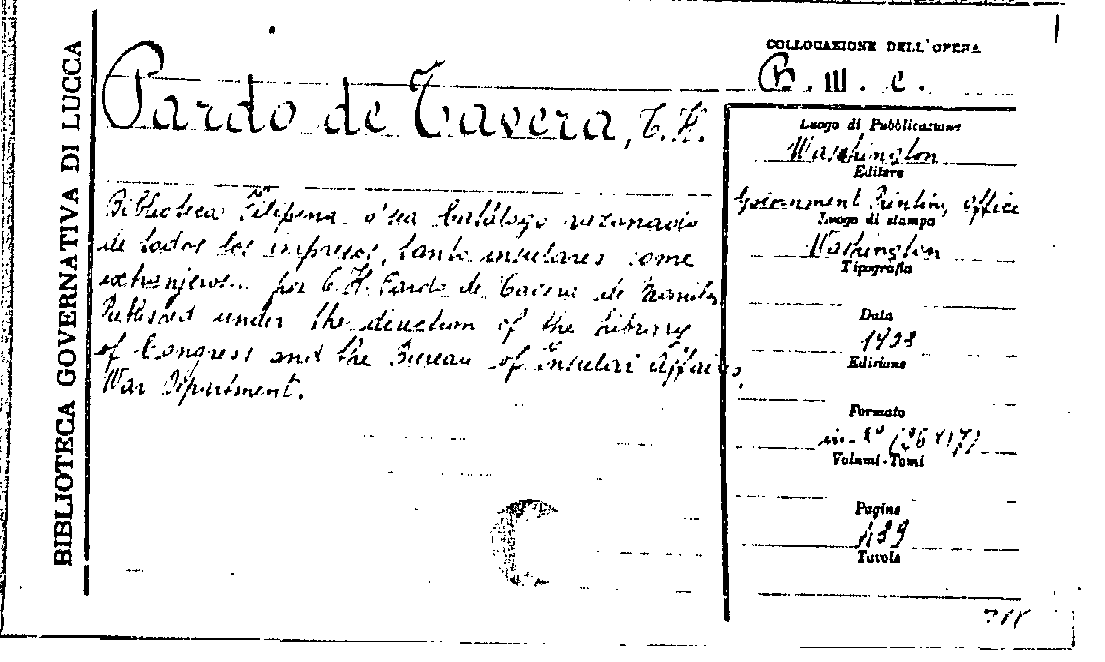 BIBLIOTECA GOVERNATIVA DI LUCCA
COLLOCAZIONE DELL'OPERA
B. III. c.
Pardo de Tavera, T. H.
Biblioteca Filipina o sea Catálogo razonado
de todos los impresos, tanto insulares come
extranjeros.. por T. H. Pardo de Tavera de Manila
Published under the direction of the Library
of Congress and the Bureau of Insular Affairs,
War Department.
Luogo di Pubblicazione
Washington
Editore
Government Printing Office
Luogo di stampa
Washington
Tipografia
Data
Edizione
Formato
Volumi-Tomi
Pagine
439
Tavole